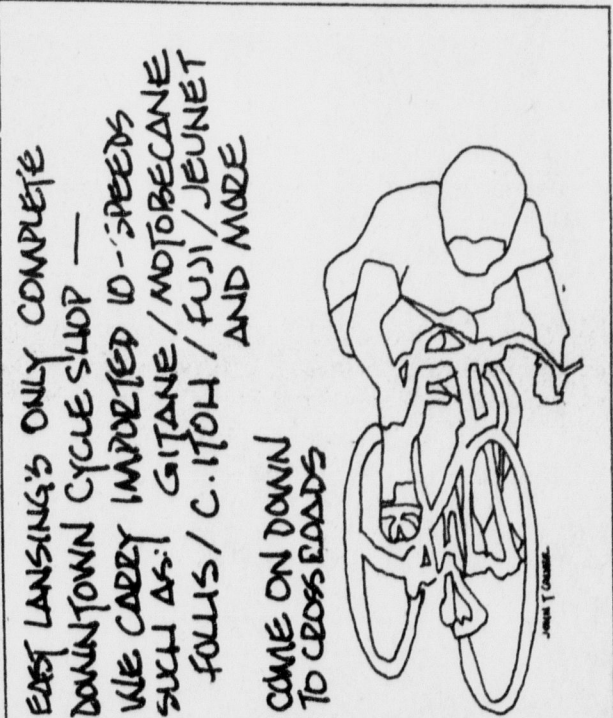 EAST LANSING'S ONLY COMPLETE
DOWNTOWN CYCLE SHOP —
WE CARRY IMPORTED 10-SPEEDS
SUCH AS: GITANE / MOTOBECANE
FOLLIS / C. ITOH / FUJI / JEUNET
AND MORE
COME ON DOWN
TO CROSSROADS